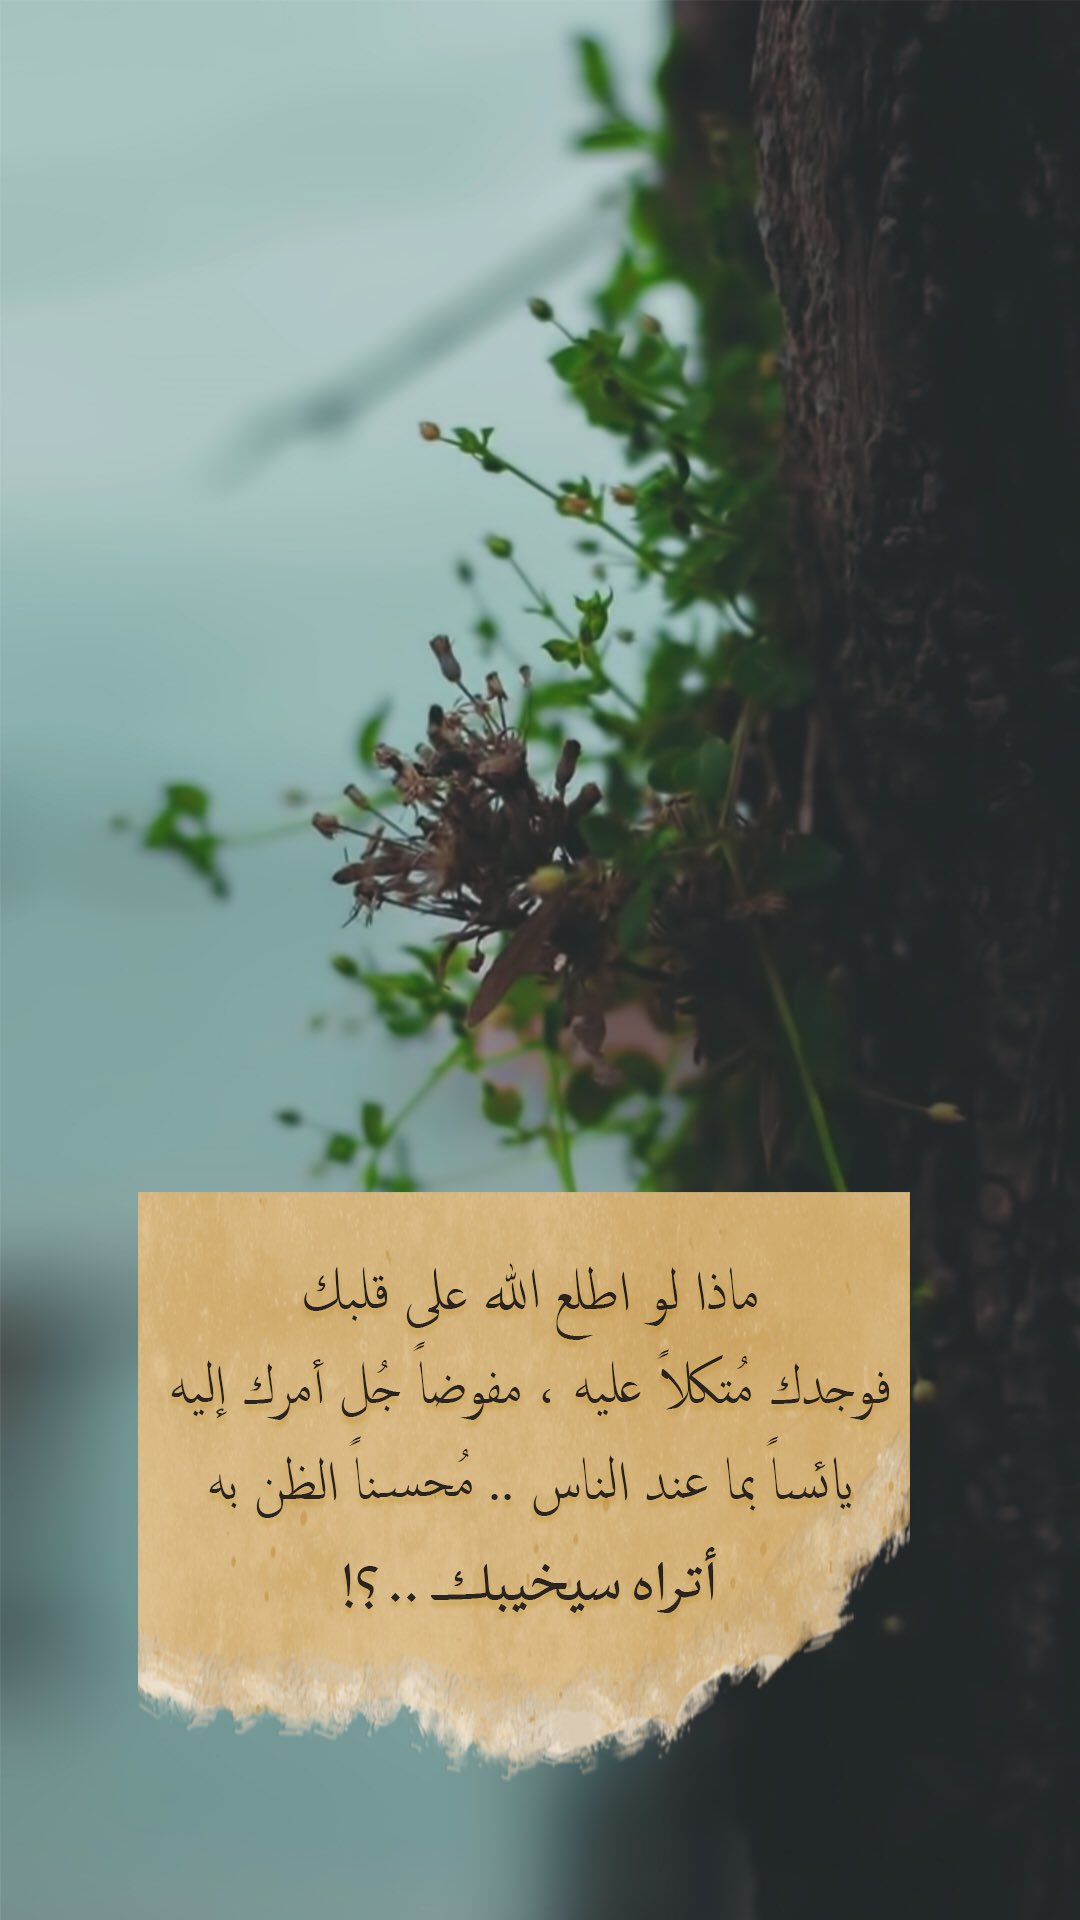 ماذا لو اطلع الله على قلبك
فوجدك مُتكلاً عليه ، مفوضاً جُل أمرك إليه
يائساً بما عند الناس .. مُحسناً الظن به
أتراه سيخيبك .. ؟!